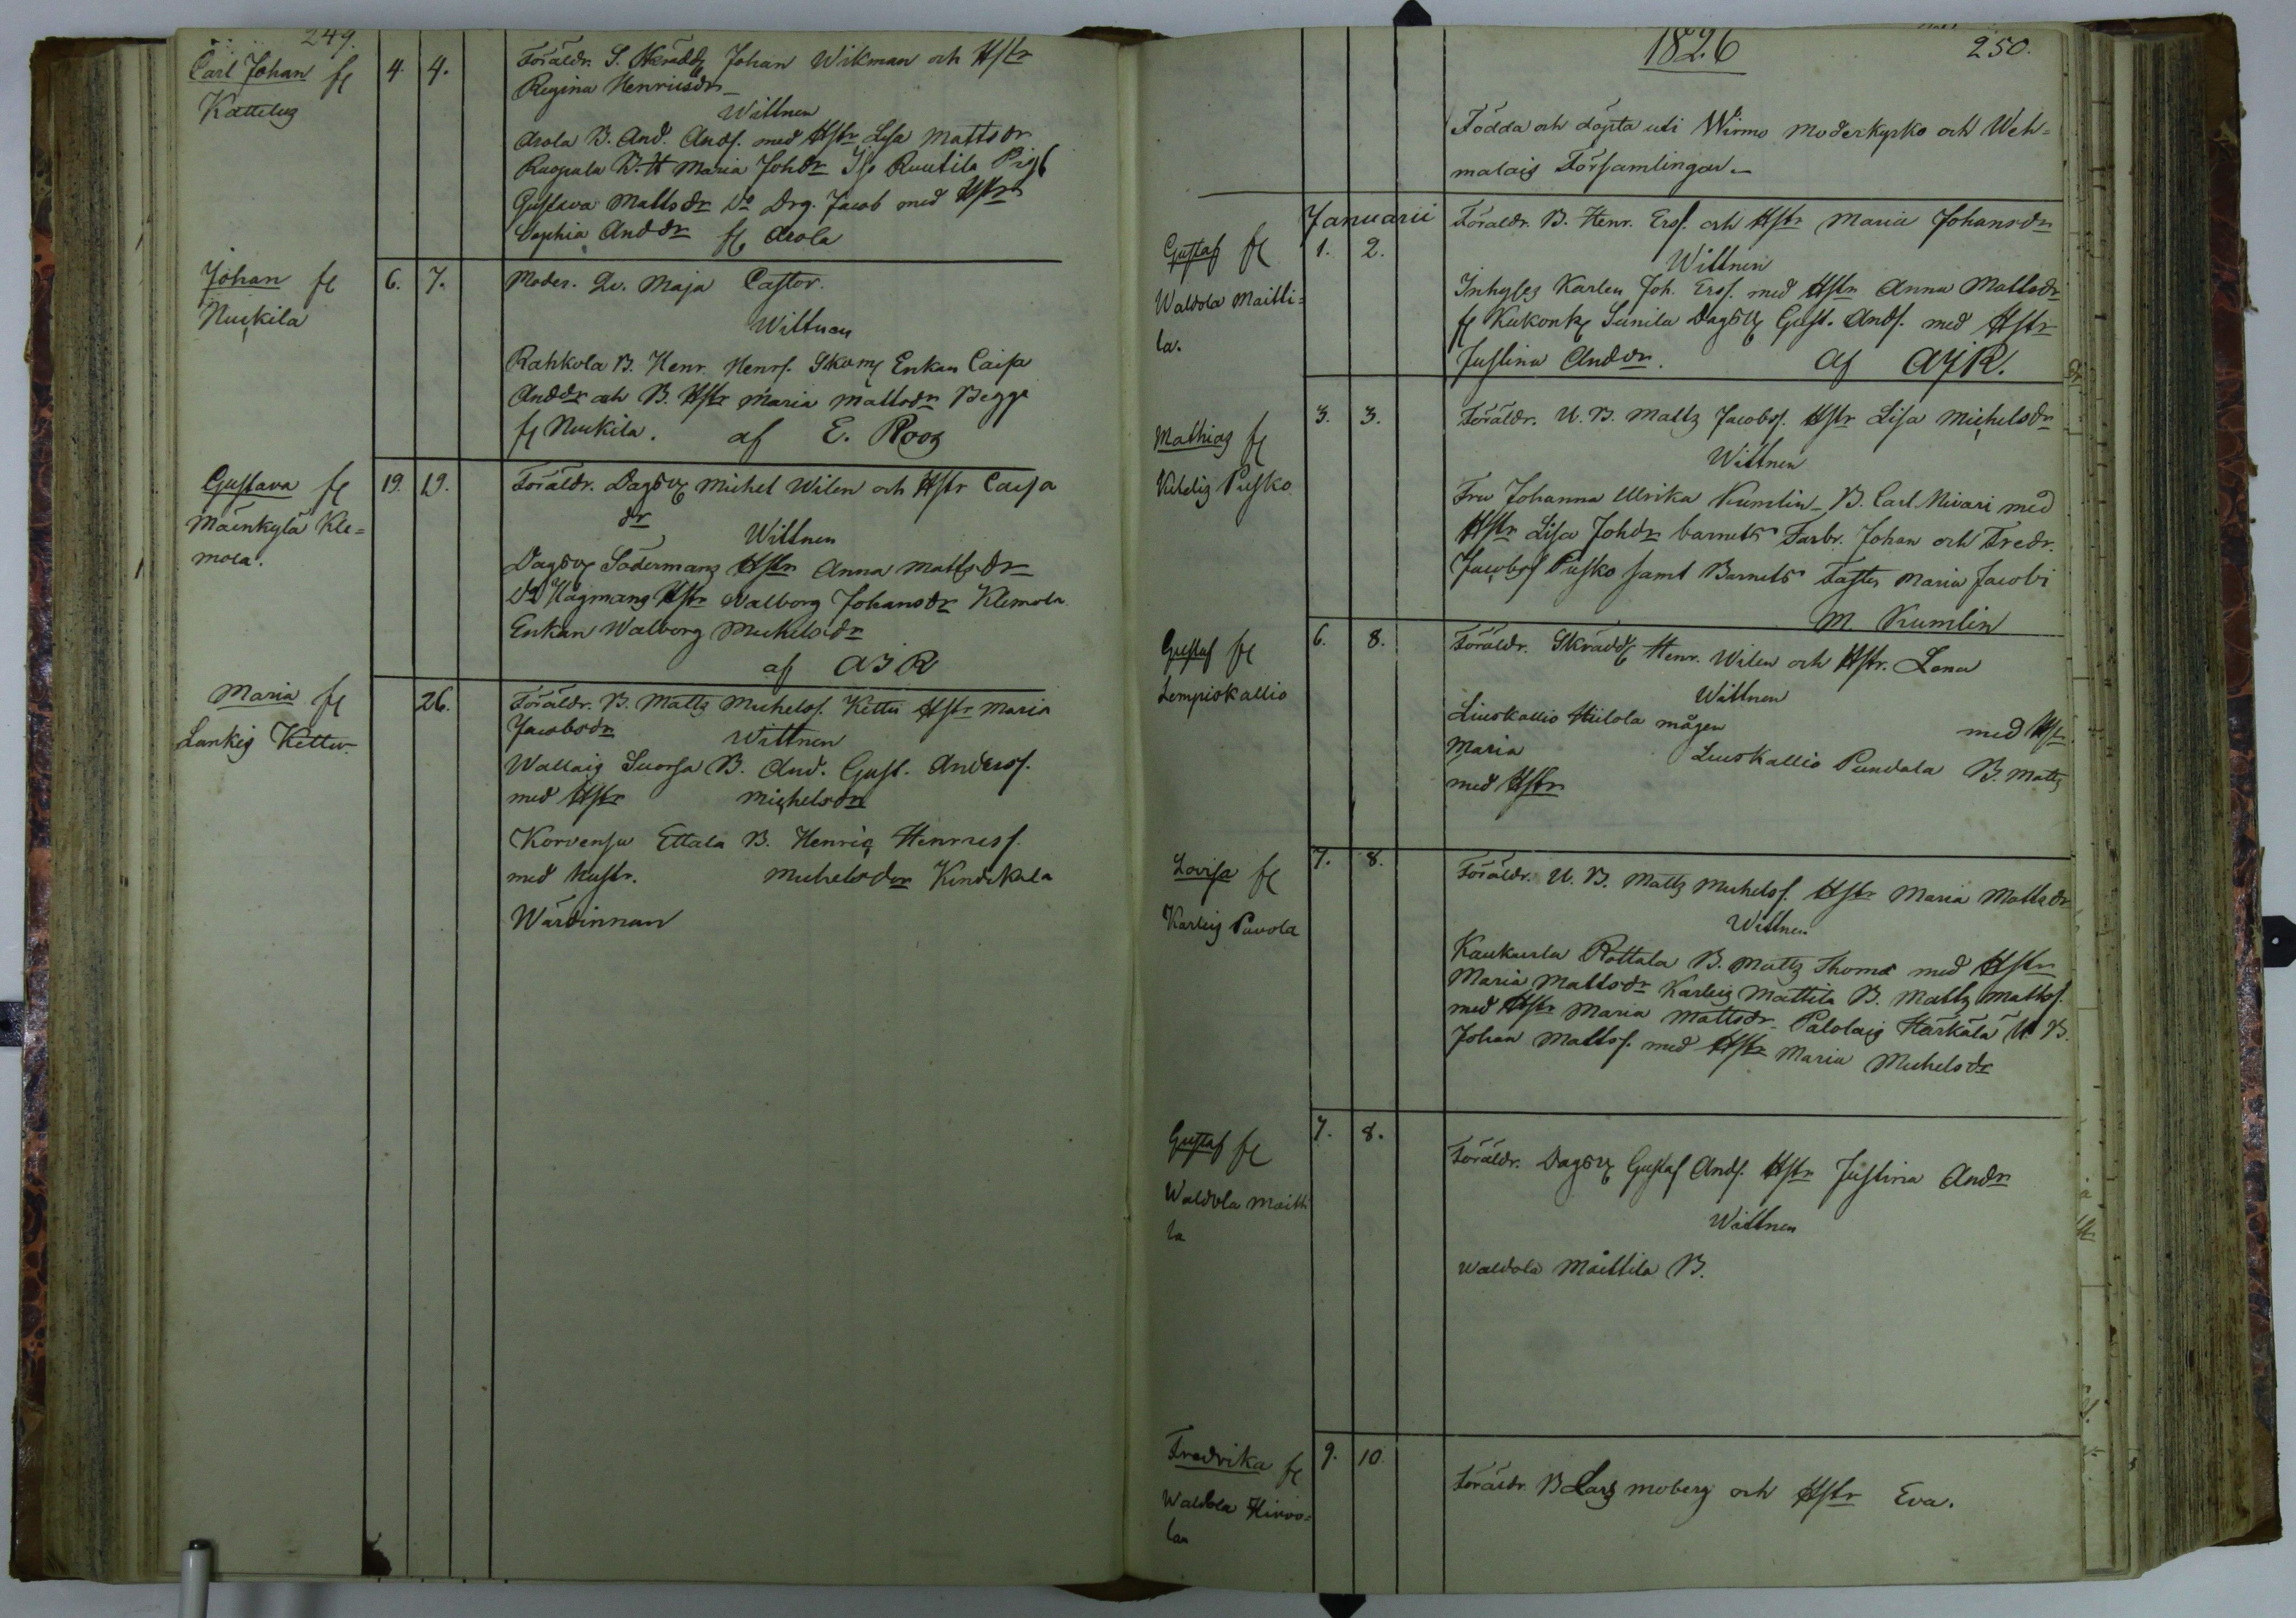 249.
Carl Johan fr
Kattelus
4. 4.
Föräldr. S. Skrädd Johan Wikman och Hstr
Regina Henricsdr
Wittnen
Arola B. And. Ands. med Hstr Lisa Mattsdr
Ruopula B. H Maria Johdr Iso Ruutila Pig
Gustava Mattsdr Do Drg. Jacob med Hstr
Sophia Anddr fr Arola
Johan fr
Nuckila
6. 7.
Moder. Qv. Maja Castor.
Wittnen
Rahkola B. Henr. Henrs. Skom Enkan Caisa
Anddr och B. Hstr Maria Mattsdr Begge
fr Nuckila. af E. Roos
Gustava fr
Mäenkylä Kle=
mola.
19. 19.
Föräldr. Dagsv Michel Wilen och Hstr Caisa
dr
Wittnen
Dagsv Södermans Hstr Anna Mattsdr
Do Hägmans Hstr Walborg Johansdr Klemola
Enkan Walborg Michelsdr
af AJR
Maria fr
Lankis Kettu
26.
Föräldr. B. Matts Michelss. Kettu Hstr Maria
Jacobsdr
Wittnen
Wallais Suorsa B. And. Gust. Anderss.
med Hstr Michelsdr
Korvensu Ettala B. Henric Henricss.
med hustr. Michelsdor Kindikala
Wärdinnan
1826
250.
Födda och döpta uti Wirmo Moderkyrko och Weh=
malais Församlingar
Januarii
Gustaf fr
Waldola Maitti=
la.
1. 2.
Föräldr. B. Henr. Erss. och Hstr Maria Johansdr
Wittnen
Inhyses Karlen Joh. Erss. med Hstr Anna Mattsdr
fr Kukonk Sunila Dagsv Gust. Ands. med Hstr
Justina Anddr. af AJR.
Mathias fr
Kitelis Pusko
3. 3.
Föräldr. U. B. Matts Jacobss. Hstr Lisa Michelsdr
Wittnen
Fru Johanna Ulrika Kumlin B. Carl Nivari med
Hstr Lisa Johdr barnets Farbr. Johan och Fredr.
Jacobss Pusko samt Barnets Faster Maria Jacobi
M Kumlin
Gustaf fr
Lempiskallio
6. 8.
Föräldr. Skrädd Henr. Wilen och Hstr. Lena
Wittnen
Liuskallio Hiilola mågen med Hstr
Maria Liuskallio Pundala B. Matts
med Hstr
Lovisa fr
Karleis Pavola
7. 8.
Föräldr. U. B. Matts Michelss. Hstr Maria Mattsdr
Wittnen
Kaukurla Rottala B. Matts Thoms med Hstr
Maria Mattsdr Karleis Mattila B. Matts Matts.
med Hstr Maria Mattsdr Palolais Härkälä U. B.
Johan Mattss. med Hstr Maria Michelsdr
Gustaf fr
Waldola Maitti
la
7. 8.
Föräldr. Dagsv Gustaf Ands. Hstr Justina Andr
Wittnen
Waldola Maittila B.
Fredrika fr
Waldola Hirvo=
lan
9. 10.
Föräldr. B Lars Moberg och Hstr Eva.